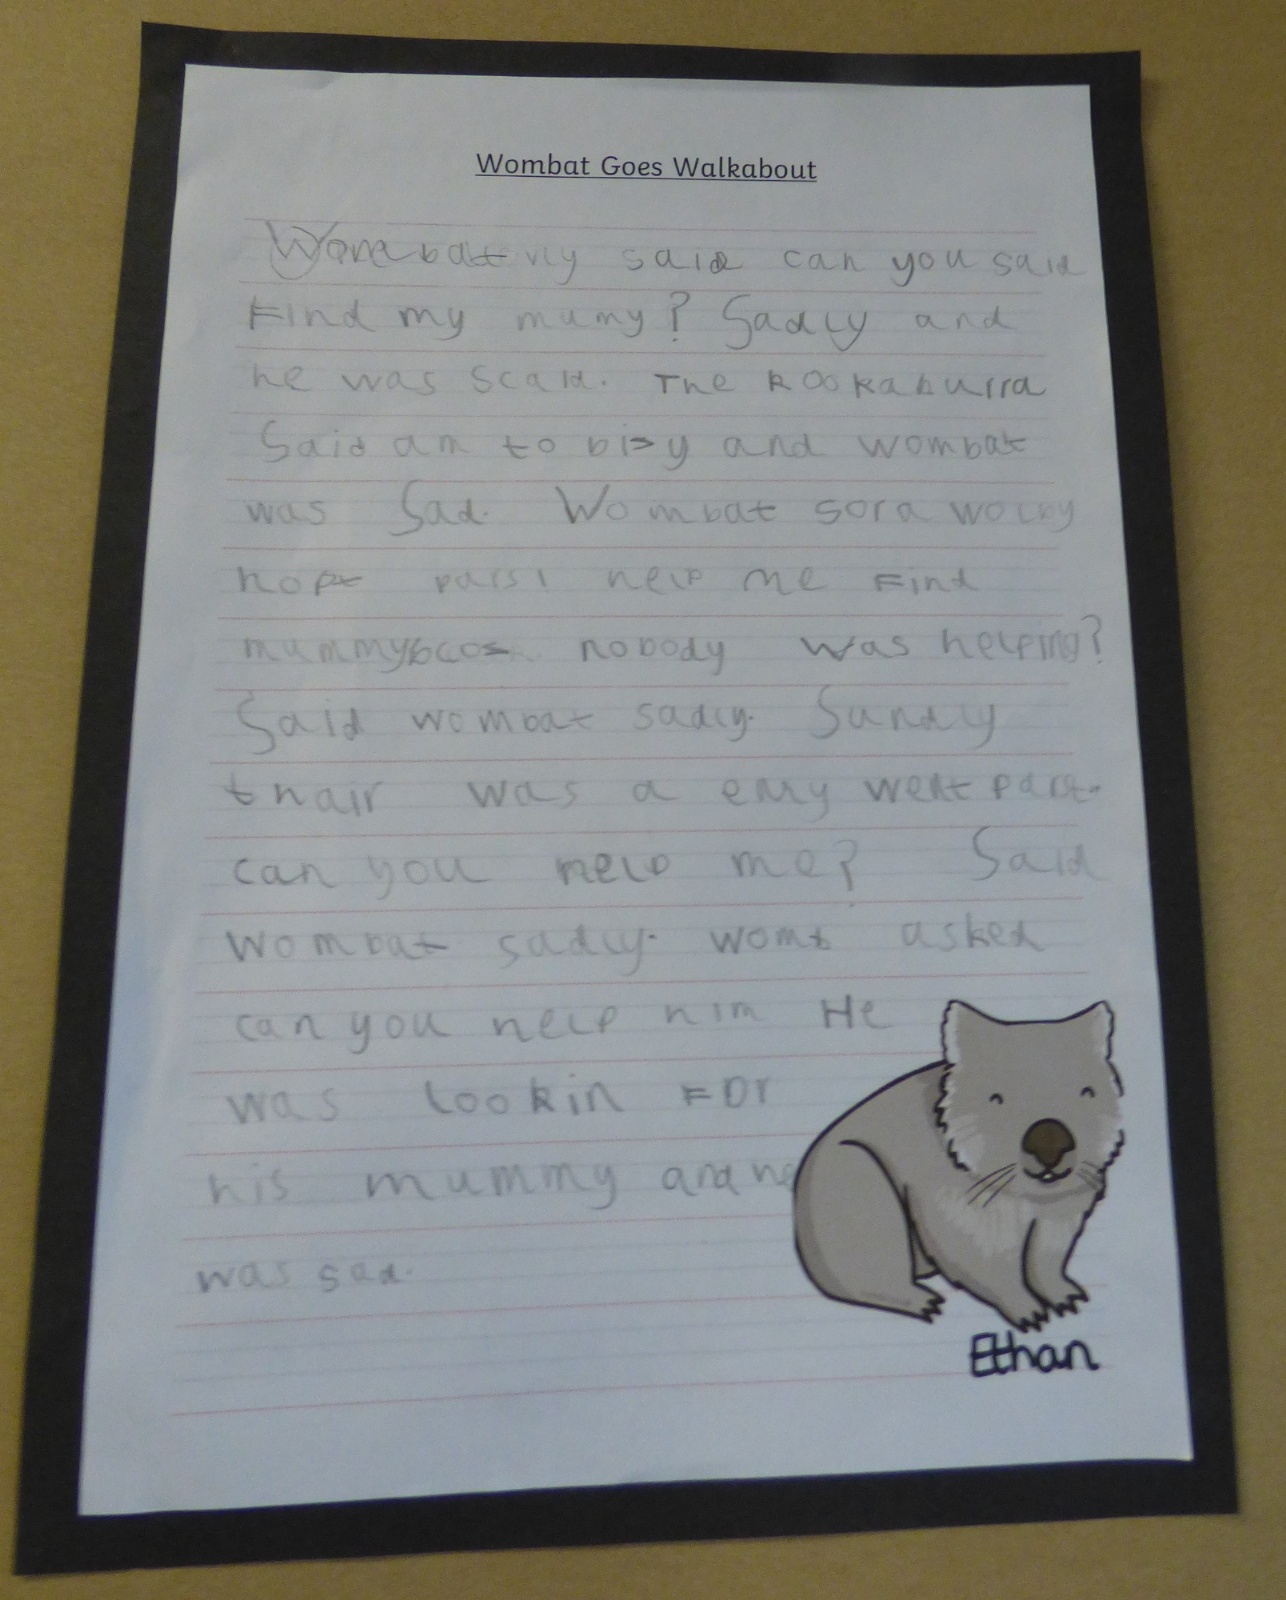 Wombat Goes Walkabout
Wombat said can you said
Find my mumy? Sadly and
he was scaid. The kookaburra
Said am to bisy and wombat
was Sad. Wombat
help me Find
mummy nobody was helping?
Said wombat sadly.
was a
can you help me? Said
wombat sadly. asked
can you help him He
was lookin FOr
his mummy and he
was sad.
Ethan